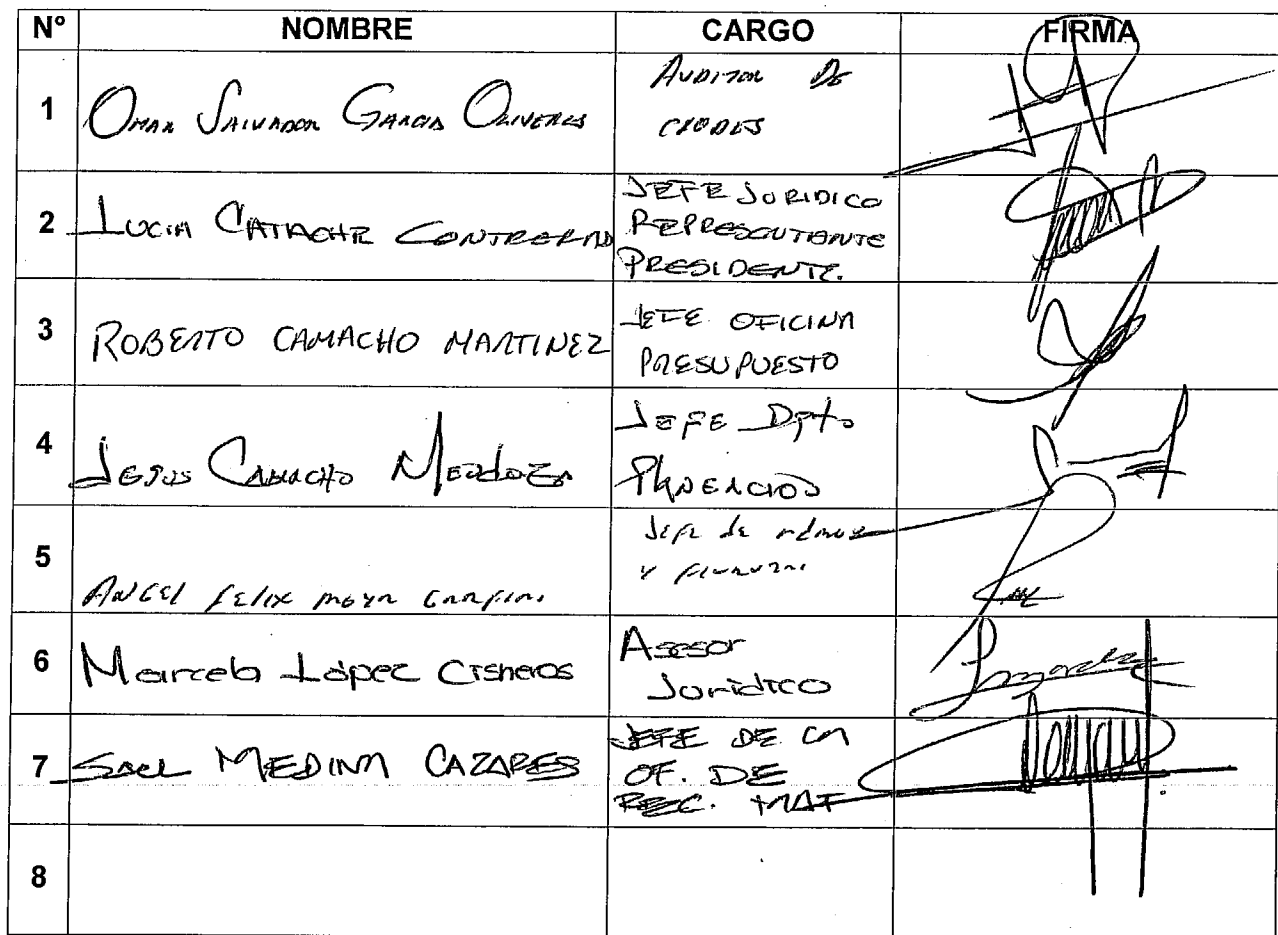 N° NOMBRE CARGO FIRMA
1 OMAR SALVADOR GARCIA OLIVERES AUDITOR DE
2 LUCIA CONTRERAS JEFE JURIDICO
REPRESENTANTE
PRESIDENTE.
3 ROBERTO CAMACHO MARTINEZ JEFE OFICINA
PRESUPUESTO
4 JESUS CAMACHO MENDOZA JEFE Dpto
5 ANGEL FELIX MOYA Jefe de
y
6 Marcela López Cisneros Asesor
Jurídico
7 SAUL MEDINA CAZARES JEFE DE LA
OF. DE
REC. MAT
8